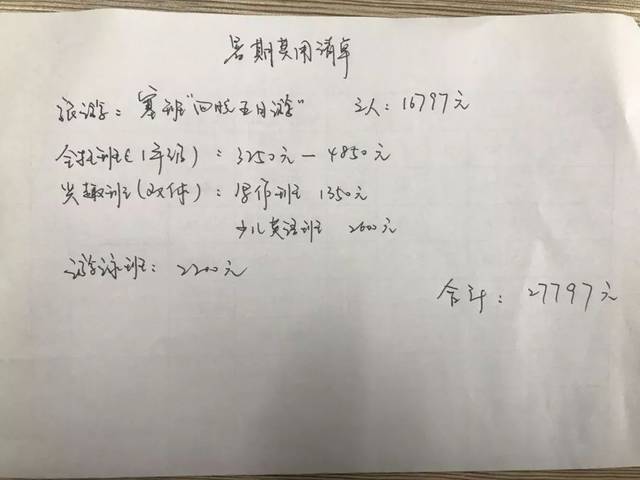 暑期费用清单
旅游: 塞班"四晚五日游" 三人: 16797元
全托班(1年级): 3250元—4850元
兴趣班(双休): 写作班 1350元
少儿英语班 2600元
游泳班: 2200元
合计: 27797元